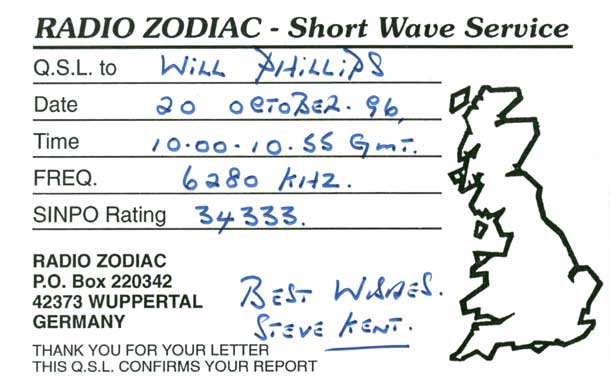 RADIO ZODIAC - Short Wave Service
Q.S.L. to WILL PHILLIPS
Date 20 OCTOBER. 96
Time 10.00-10.55 GMT.
FREQ. 6280 KHZ.
SINPO Rating 34333.
RADIO ZODIAC
P.O. Box 220342
42373 WUPPERTAL
GERMANY
BEST WISHES.
STEVE KENT.
THANK YOU FOR YOUR LETTER
THIS Q.S.L. CONFIRMS YOUR REPORT